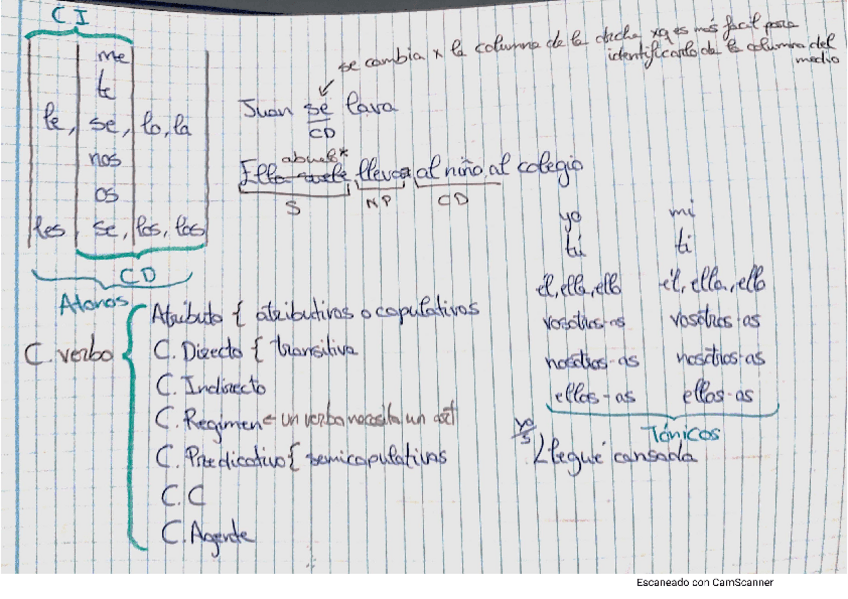 CI
me
te
le, se, lo, la
nos
os
les, se, los, las
CD
Atonos
se cambia x la columna de la dcha xq es más facil para
identificarlo de la columna del
medio
Juan se lava
CD
abuela*
Ella suele lleva al niño al colegio
S NP CD
yo mi
tú ti
él, ella, ello él, ella, ello
vosotros-as vosotros-as
nosotros-as nosotros-as
ellos-as ellos-as
Tónicos
C. verbo
Atributo { atributivos o copulativos
C. Directo { transitiva
C. Indirecto
C. Regimen un verbo necesita un
C. Predicativo { semicopulativas
C.C
C. Agente
yo
S
Llegué cansada
Escaneado con CamScanner